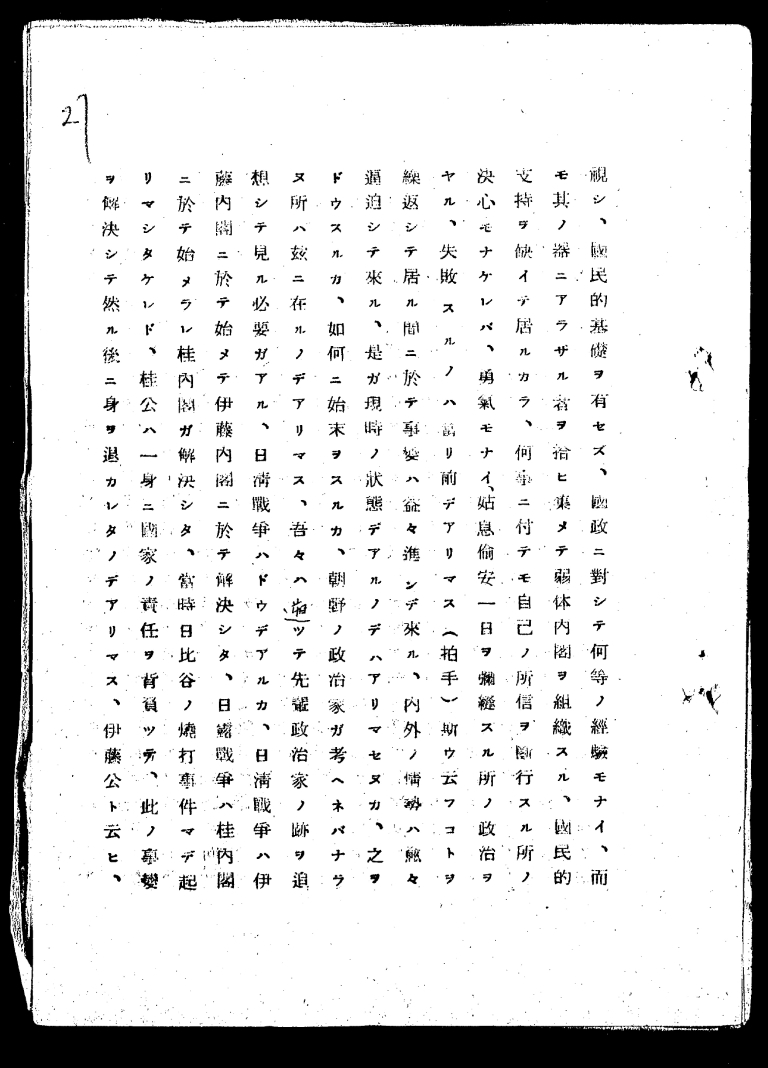 27
視シ、國民的基礎ヲ有セズ、國政ニ對シテ何等ノ經驗モナイ、而
モ其ノ器ニアラザル者ヲ拾ヒ集メテ弱体内閣ヲ組織スル、國民的
支持ヲ缺イテ居ルカラ、何事ニ付テモ自己ノ所信ヲ斷行スル所ノ
決心モナケレバ、勇氣モナイ、姑息偷安一日ヲ彌縫スル所ノ政治ヲ
ヤル、失敗スルノハ當リ前デアリマス（拍手）斯ウ云フコトヲ
繰返シテ居ル間ニ於テ事變ハ益々進ンデ來ル、内外ノ情勢ハ愈々
逼迫シテ來ル、是ガ現時ノ狀態デアルノデハアリマセヌカ、之ヲ
ドウスルカ、如何ニ始末ヲスルカ、朝野ノ政治家ガ考ヘネバナラ
ヌ所ハ玆ニ在ルノデアリマス、吾々ハ遡ツテ先輩政治家ノ跡ヲ追
想シテ見ル必要ガアル、日淸戰爭ハドウデアルカ、日淸戰爭ハ伊
藤内閣ニ於テ始メテ伊藤内閣ニ於テ解決シタ、日露戰爭ハ桂内閣
ニ於テ始メラレ桂内閣ガ解決シタ、當時日比谷ノ燒打事件マデ起
リマシタケレド、桂公ハ一身ニ國家ノ責任ヲ背負ツテ、此ノ事變
ヲ解決シテ然ル後ニ身ヲ退カレタノデアリマス、伊藤公ト云ヒ、